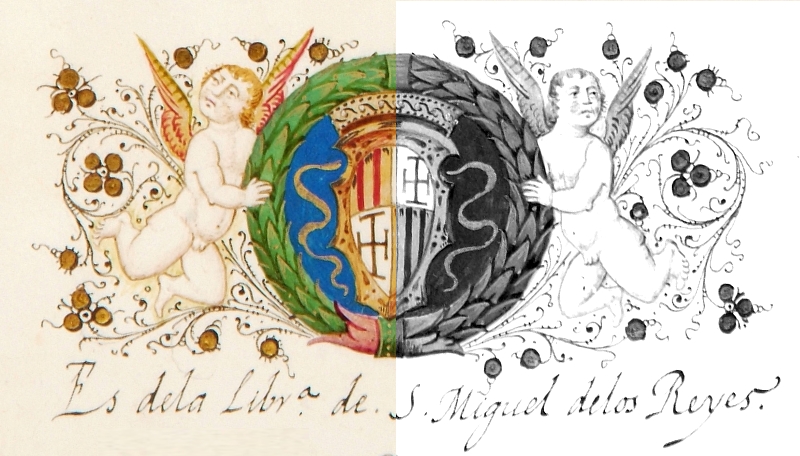 Es dela Libr.ª de. S. Miguel delos Reyes.